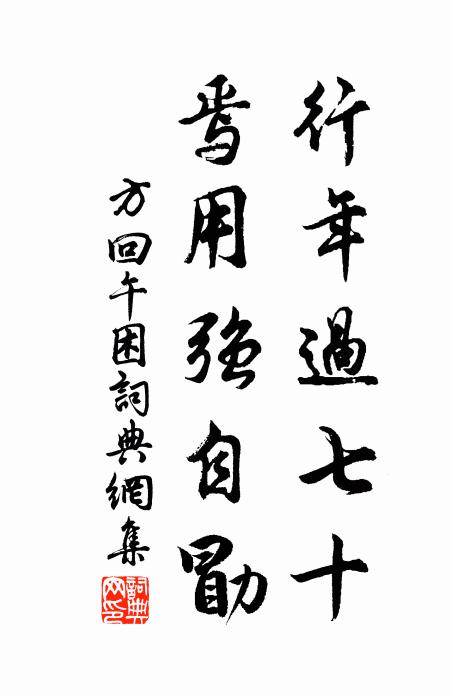 行年過七十
焉用強自勖
方回午困詞典網集